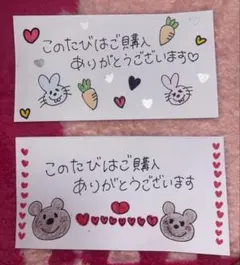 このたびはご購入
ありがとうございます♡
このたびはご購入
ありがとうございます